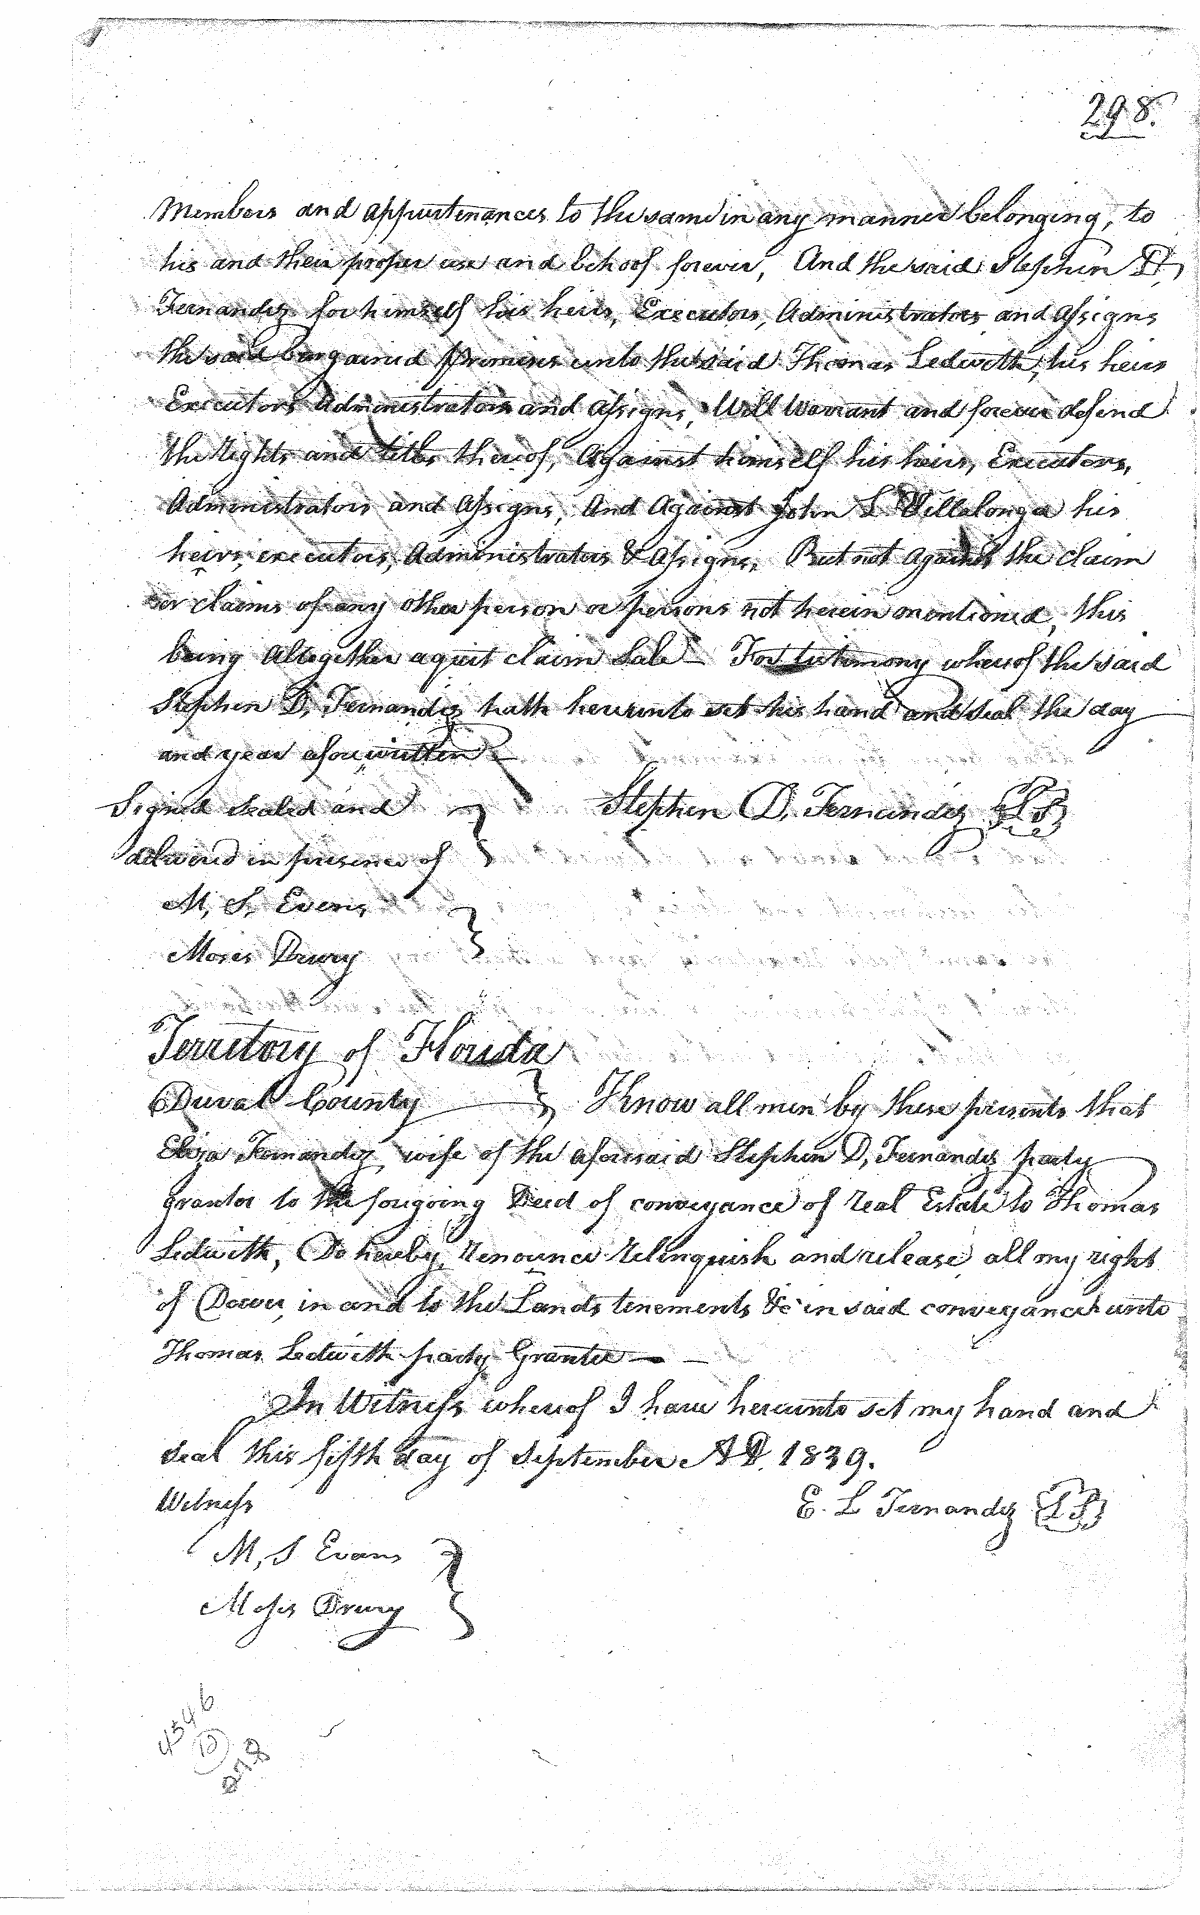 298.
Members and appurtenances to the same in any manner belonging, to
his and their proper use and behoof forever, And the said Stephen D,
Fernandez for himself his heirs, Executors, Administrators and assigns
the said bargained premises unto the said Thomas Ledwith, his heirs
Executors Administrators and assigns, Will Warrant and forever defend
the rights and titles thereof, Against himself his heirs, Executors,
Administrators and assigns, And Against John L Villalonga his
heirs, executors, Administrators & assigns, But not against the claim
or claims of any other person or persons not herein mentioned, this
being altogether a quit claim sale — For testimony whereof the said
Stephen D, Fernandez hath hereunto set his hand and seal the day
and year afore written —
Signed sealed and } Stephen D. Fernandez LS
delivered in presence of
M, S, Evens }
Moses Drury
Territory of Florida
Duval County } Know all men by these presents that
Eliza Fernandez, wife of the aforesaid Stephen D, Fernandez party
grantor to the foregoing Deed of conveyance of real Estate to Thomas
Ledwith, Do hereby, renounce relinquish and release all my right
of Dower, in and to the Lands tenements &c in said conveyance unto
Thomas Ledwith party Grantee —
In Witness whereof I have hereunto set my hand and
seal this fifth day of September AD. 1839.
Witness E. L Fernandez LS
M, S Evans }
Moses Drury
4346
13
298